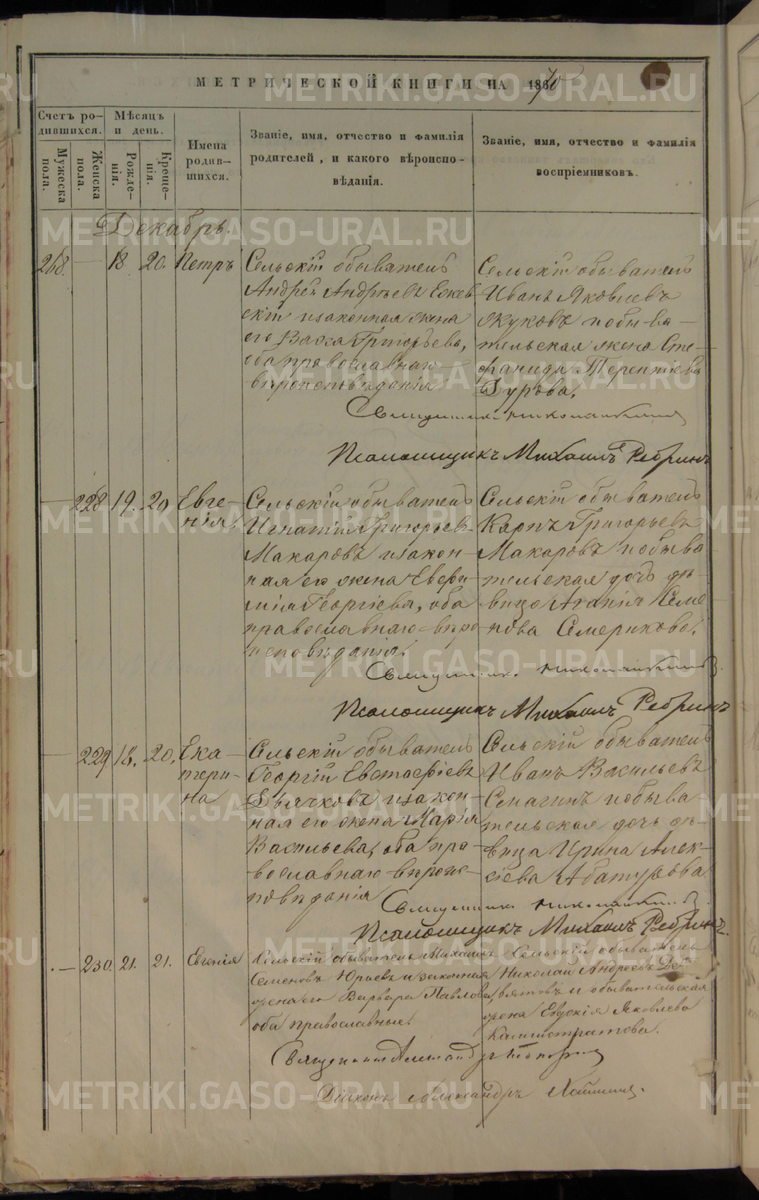 МЕТРИЧЕСКОЙ КНИГИ НА 1870
Счетъ родившихся.
Мѣсяцъ и день.
Мужеска пола.
Женска пола.
Рожденія.
Крещенія.
Имена родившихся.
Званіе, имя, отчество и фамилія
родителей, и какого вѣроиспо-
вѣданія.
Званіе, имя, отчество и фамилія
воспріемниковъ.
Декабрь.
268. — 18. 20. Петръ
Сельскій обыватель
Андрей Андреевъ
изаконная жена
его Васса Григорьева,
оба православнаго
вѣроисповѣданія
Сельскій обыватель
Иванъ Яковлевъ
Жуковъ побыва-
тельская жена Сте-
фанида Терентіева
Дурова.
Священникъ
Псаломщикъ Михаилъ Ребринъ
— 228 19. 20 Евге-
нія
Сельскій обыватель
Игнатій Григорьевъ
Макаровъ изакон-
ная его жена Евфи-
мія Георгіева, оба
православнаго вѣро
исповѣданія.
Сельскій обыватель
Карпъ Григорьевъ
Макаровъ побыва
тельская дочь дѣ-
вица Семе
нова Семерикова.
Священникъ
Псаломщикъ Михаилъ Ребринъ
— 229 18. 20. Ека
тери-
на
Сельскій обыватель
Георгій Евстафіевъ
Дьячковъ изакон
ная его жена Марія
Васильева, оба пра-
вославнаго вѣроис-
повѣданія
Сельскій обыватель
Иванъ Васильевъ
побыва
тельская дочь дѣ-
вица Ирина Алек-
сіева Абатурова
Священникъ
Псаломщикъ Михаилъ Ребринъ.
— 230. 21. 21. Евгенія
Сельскій обыватель Михаилъ
Семеновъ Юрьевъ и законная
жена его Варвара Павлова,
оба православные.
Сельскій обыватель
Николай Андреевъ Де-
вятовъ и обывательская
жена Евдокія Яковлева
Калистратова.
Священникъ Александръ
Діаконъ Александръ
METRIKI.GASO-URAL.RU